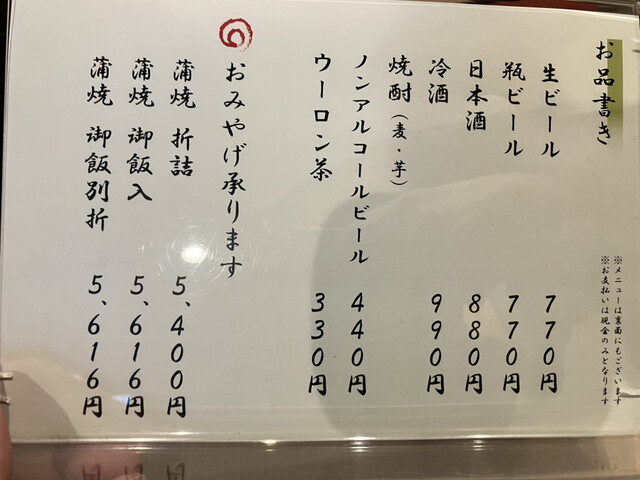 お品書き
※メニューは裏面にもございます
※お支払いは現金のみとなります
生ビール 770円
瓶ビール 770円
日本酒 880円
冷酒 990円
焼酎（麦・芋）
ノンアルコールビール 440円
ウーロン茶 330円
おみやげ承ります
蒲焼 折詰 5,400円
蒲焼 御飯入 5,616円
蒲焼 御飯別折 5,616円